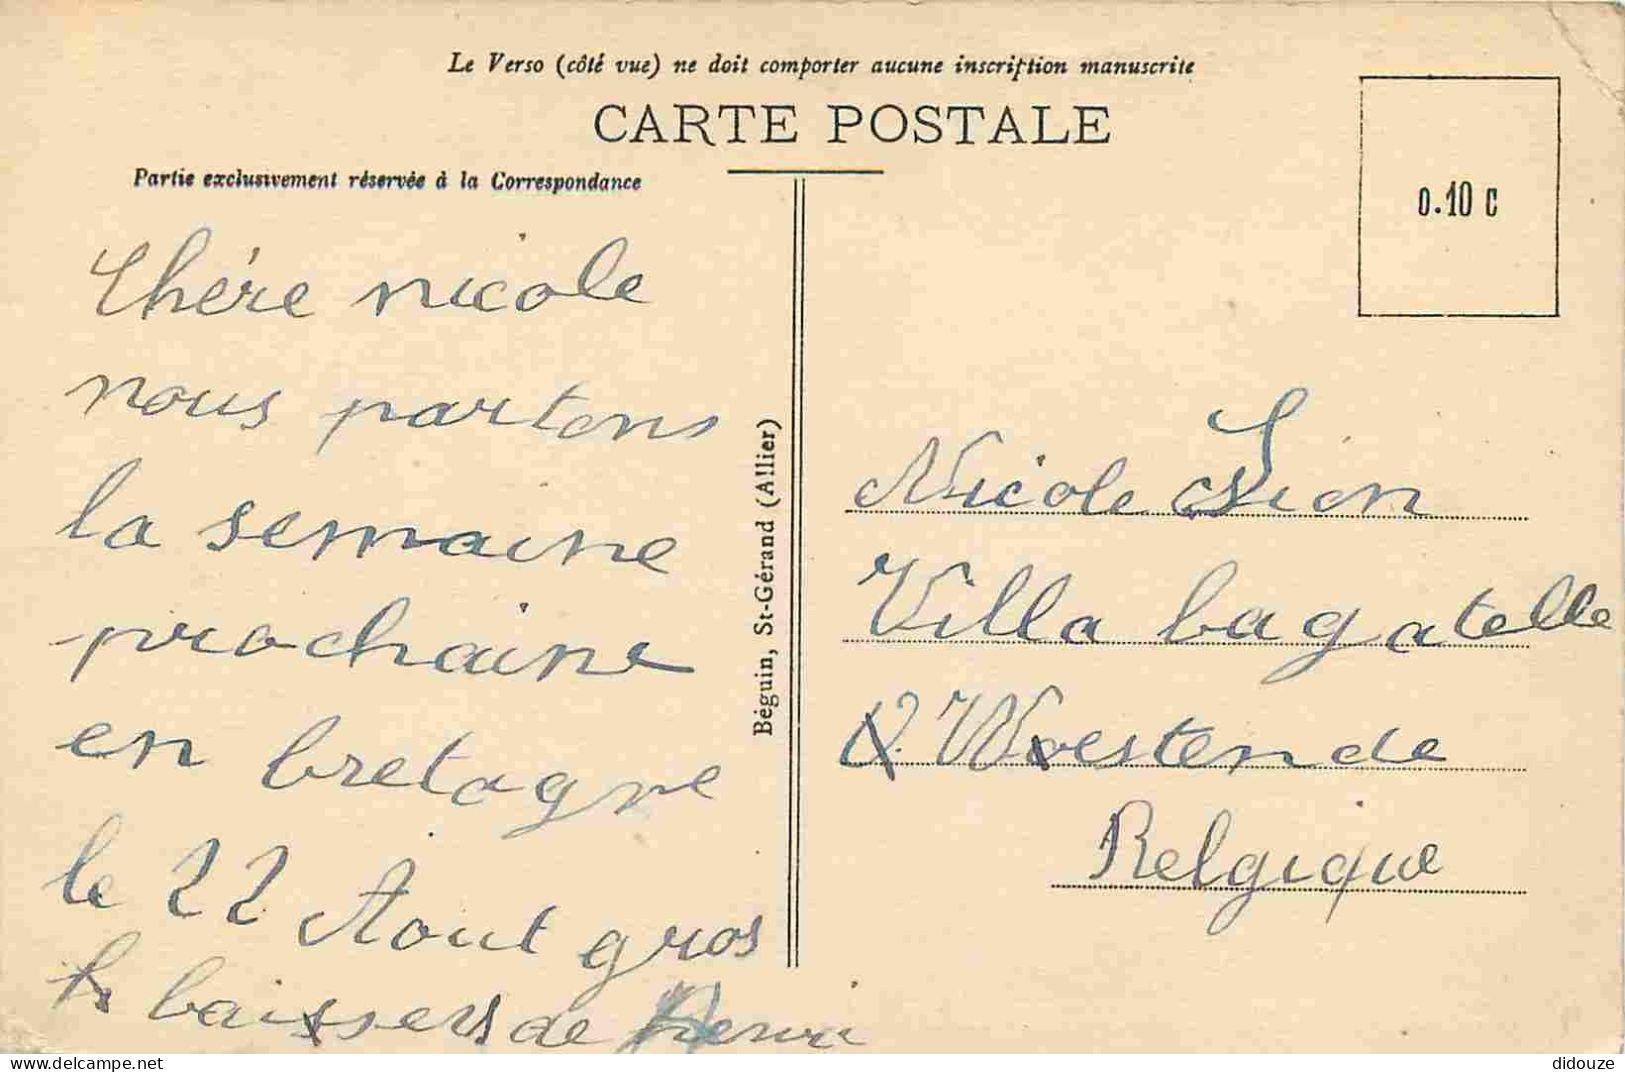 Le Verso (côté vue) ne doit comporter aucune inscription manuscrite
CARTE POSTALE
Partie exclusivement réservée à la Correspondance
0.10 C
Chére nicole
nous partons
la semaine
prochaine
en bretagne
le 22 Aout gros
baissers de henri
Béguin, St-Gérand (Allier)
Nicole Lion
Villa bagatelle
Westende
Belgique
didouze